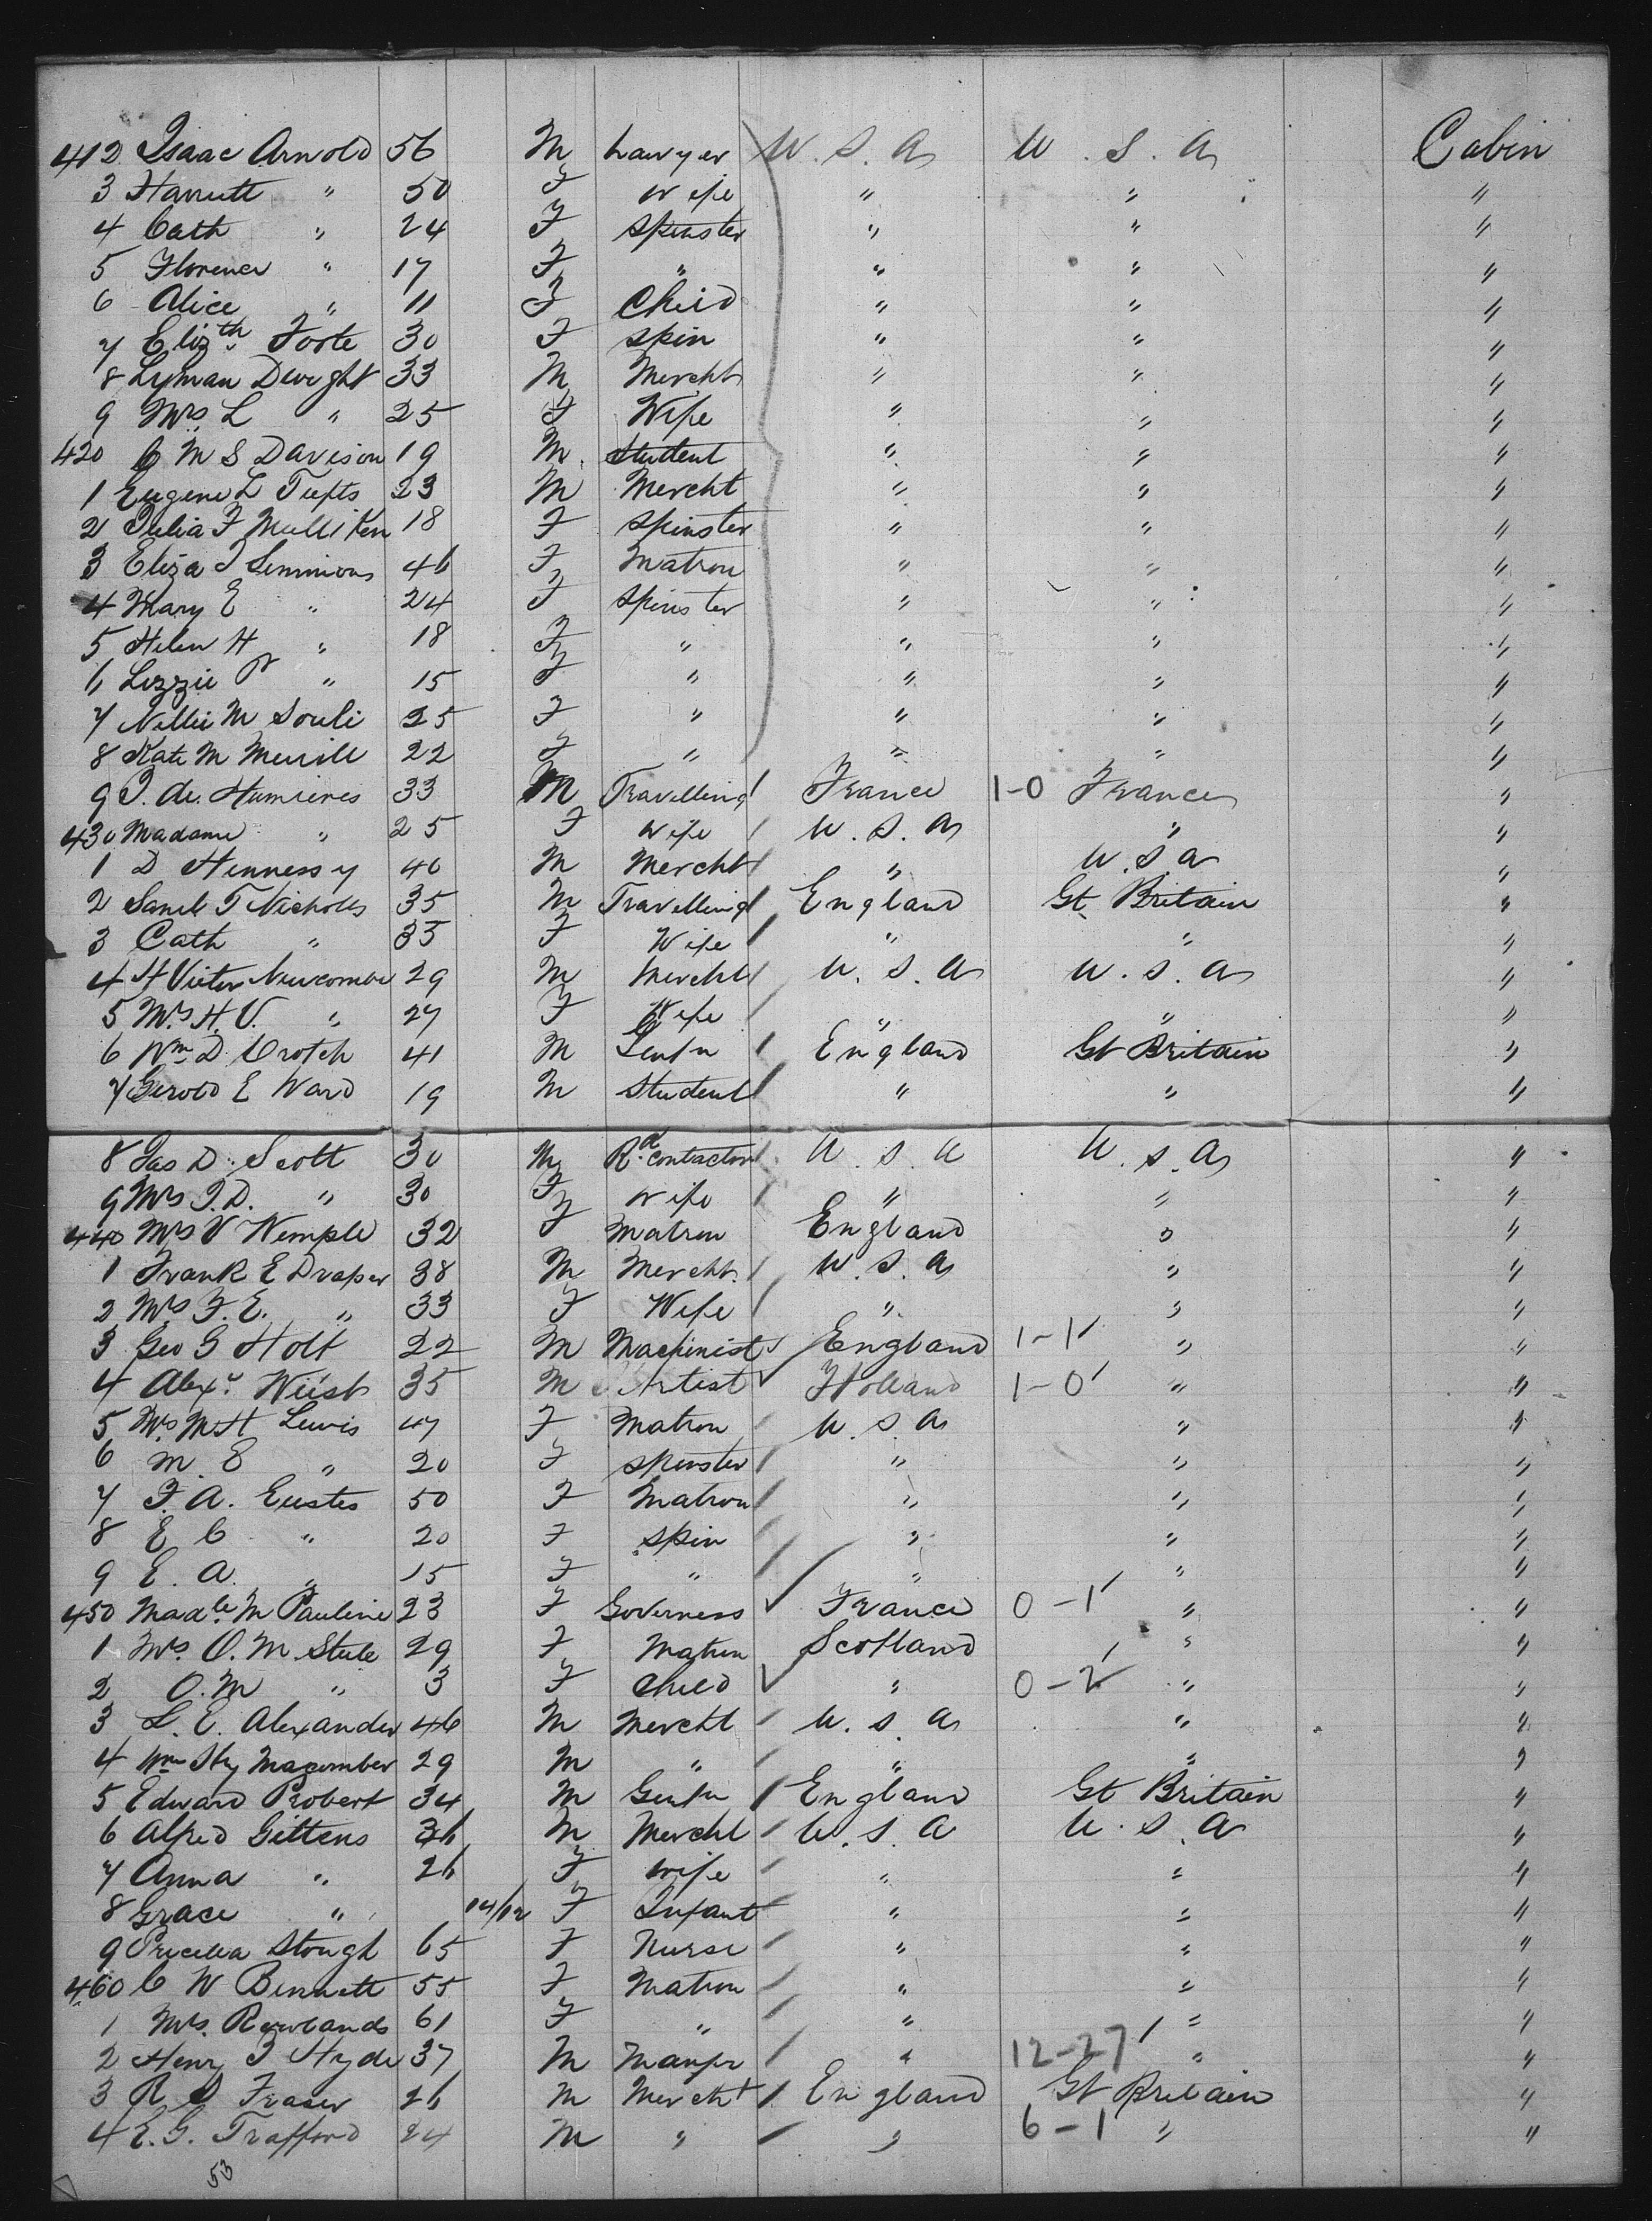 412 Isaac Arnold 56 M Lawyer U.S.A U.S.A Cabin
3 Harriett " 50 F Wife " " "
4 Cath " 24 F Spinster " " "
5 Florence " 17 F " " " "
6 Alice " 11 F Child " " "
7 Elizth Foote 30 F Spin " " "
8 Lyman Dwight 33 M Mercht " " "
9 Mrs L " 25 F Wife " " "
420 C M S Davison 19 M Student " " "
1 Eugene L Tufts 23 M Mercht " " "
2 Julia F Mulliken 18 F Spinster " " "
3 Eliza J Simmions 46 F Matron " " "
4 Mary E " 24 F Spinster " " "
5 Helen H " 18 F " " " "
6 Lizzie P " 15 F " " " "
7 Nellie M Soule 25 F " " " "
8 Kate M Merrill 22 F " " " "
9 J. de. Humieres 33 M Travelling France 1-0 France "
430 Madame " 25 F Wife U.S.A " "
1 D Hennessy 40 M Mercht " U.S.A "
2 Saml T Nicholls 35 M Travelling England Gt Britain "
3 Cath " 35 F Wife " " "
4 H Victor Newcombe 29 M Mercht U.S.A U.S.A "
5 Mrs H.V. " 27 F Wife " " "
6 Wm D Crotch 41 M Gentn England Gt Britain "
7 Gerold E Ward 19 M Student " " "
8 Jas D. Scott 30 M Rd contactor U.S.A U.S.A "
9 Mrs J.D. " 30 F Wife " " "
440 Mrs V Wemple 32 F Matron England " "
1 Frank E Draper 38 M Mercht. U.S.A " "
2 Mrs F.E. " 33 F Wife " " "
3 Geo G Holt 22 M Machinist England 1-1 " "
4 Alexr. Wüst 35 M Artist Holland 1-0 " "
5 Mrs M H Lewis 47 F Matron U.S.A " "
6 M E " 20 F Spinster " " "
7 F.A. Eustes 50 F Matron " " "
8 E C " 20 F Spin " " "
9 E.A. " 15 F " " " "
450 Madle. M Pauline 23 F Governess France 0-1 " "
1 Mrs. O.M. Steele 29 F Matron Scotland " "
2 O.M " 3 F Child " 0-2 " "
3 L.E. Alexander 46 M Mercht U.S.A " "
4 Wm Hy Macomber 29 M " " " "
5 Edward Probert 34 M Gentn England Gt Britain "
6 Alfred Gittens 36 M Mercht U.S.A U.S.A "
7 Anna " 26 F Wife " " "
8 Grace " F Infant " " "
9 Precilla Stough 65 F Nurse " " "
460 C W Bennett 55 F Matron " " "
1 Mrs. Rowlands 61 F " " " "
2 Henry J Hyde 37 M Manfr " 12-27 " "
3 R D Fraser 26 M Mercht England Gt Britain "
4 E.G. Trafford 24 M " " 6-1 " "
53